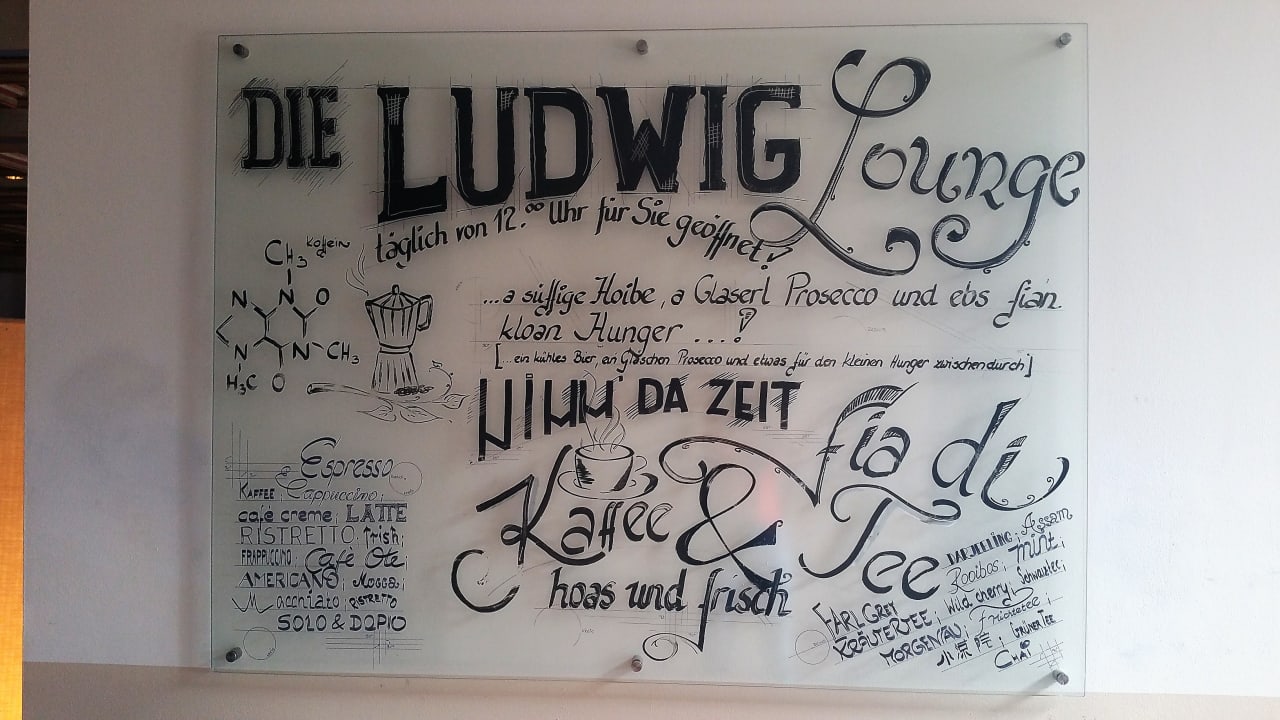 DIE LUDWIG Lounge
täglich von 12.⁰⁰ Uhr für Sie geöffnet!
CH₃ Koffein
N N O
N N CH₃
H₃C O
...a süffige Hoibe, a Glaserl Prosecco und ebs fian
kloan Hunger ....!
[...ein kühles Bier, ein Gläschen Prosecco und etwas für den kleinen Hunger zwischendurch]
NIMM DA ZEIT
Fia di
Kaffee & Tee
hoas und frisch
Espresso
KAFFEE Cappuccino;
café creme; LATTE
RISTRETTO Irish;
FRAPPUCCINO; Café Ole;
AMERICANO; Mocca;
Macchiato; RISTRETTO
SOLO & DOPIO
DARJEELING; Assam
Rooibos; mint;
EARL GREY; wild cherry; Schwarztee;
KRÄUTERTEE; Früchtetee;
MORGENTAU; GrünerTee
Chai